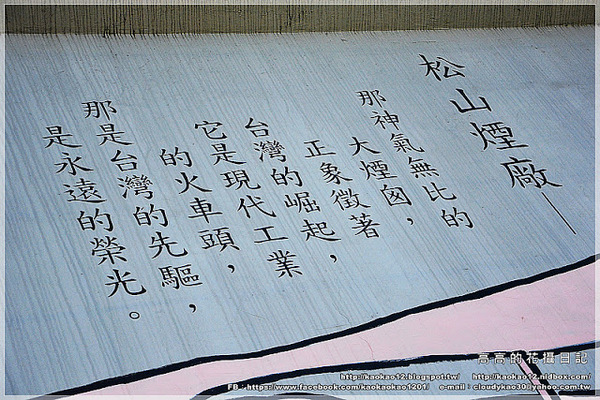 松山煙廠—
那神氣無比的
大煙囪，
正象徵著
台灣的崛起，
它是現代工業
的火車頭，
那是台灣的先驅，
是永遠的榮光。
高高的花攝日記
http://kaokao12.blogspot.tw/ http://kaokao12.nidbox.com/
FB:https://www.facebook.com/kaokao1201/ e-mail:cloudykao30@yahoo.com.tw